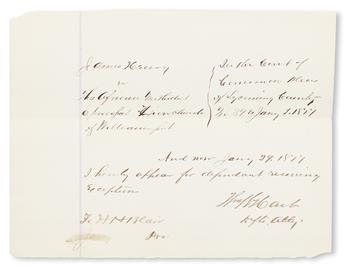 James Henry
vs
The African Methodist
Episcopal Church
of Williamsport
In the Court of
Common Pleas
of Lycoming County
No 1877
And now Jany 29. 1877
I hereby appear for defendant reserving
exceptions
To H Blair
Pro.
Atty.